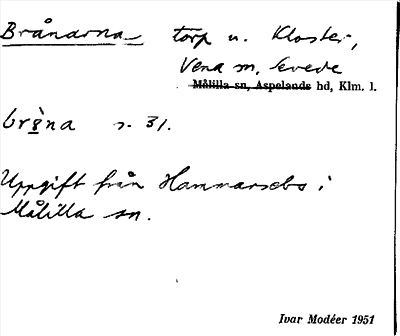 Brånarna torp u. Kloster,
Vena sn, Sevede
Målilla sn, Aspelands hd, Klm. l.
s. 31.
Uppgift från Hammarsebo i
Målilla sn.
Ivar Modéer 1951